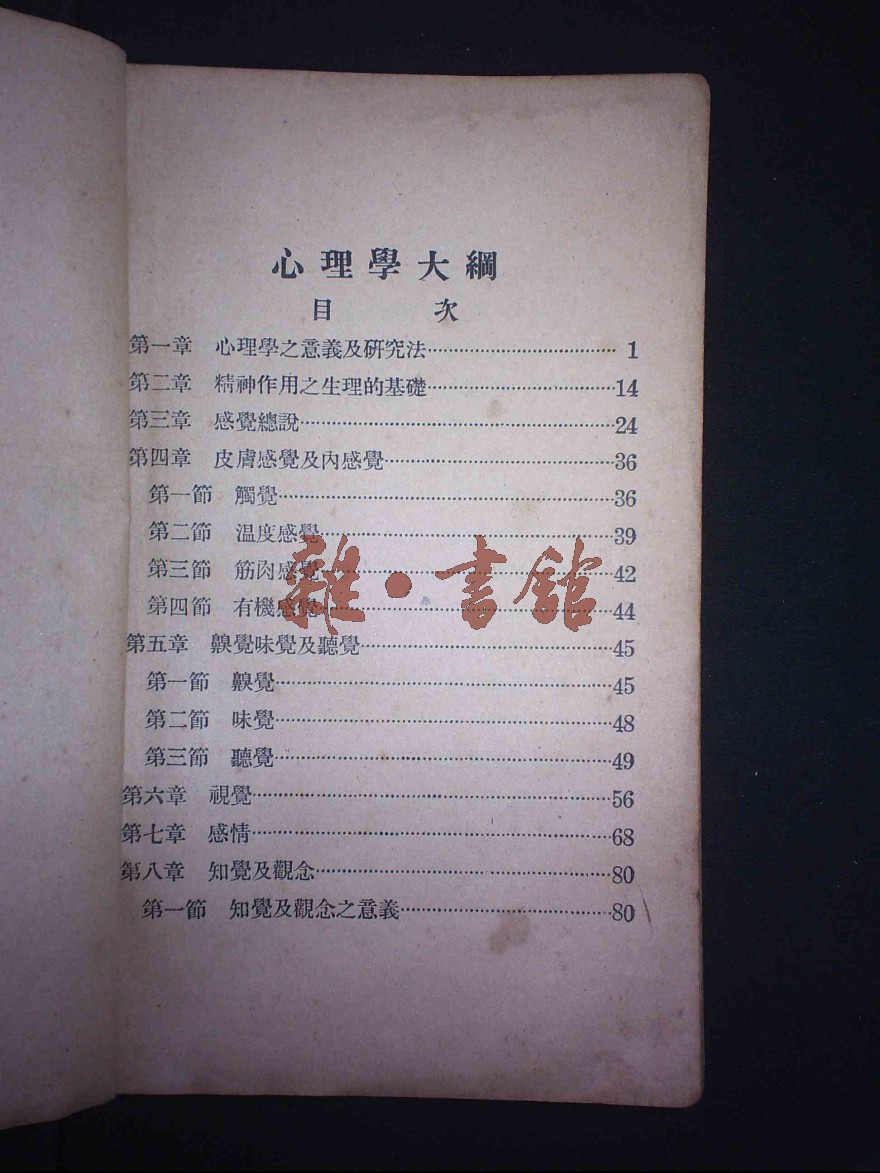 心理學大綱
目次
第一章 心理學之意義及硏究法……………………… 1
第二章 精神作用之生理的基礎………………………14
第三章 感覺總說………………………24
第四章 皮膚感覺及內感覺………………………36
第一節 觸覺………………………36
第二節 温度感覺………………………39
第三節 筋肉感覺………………………42
第四節 有機感覺………………………44
第五章 齅覺味覺及聽覺………………………45
第一節 齅覺………………………45
第二節 味覺………………………48
第三節 聽覺………………………49
第六章 視覺………………………56
第七章 感情………………………68
第八章 知覺及觀念………………………80
第一節 知覺及觀念之意義………………………80
雜·書館